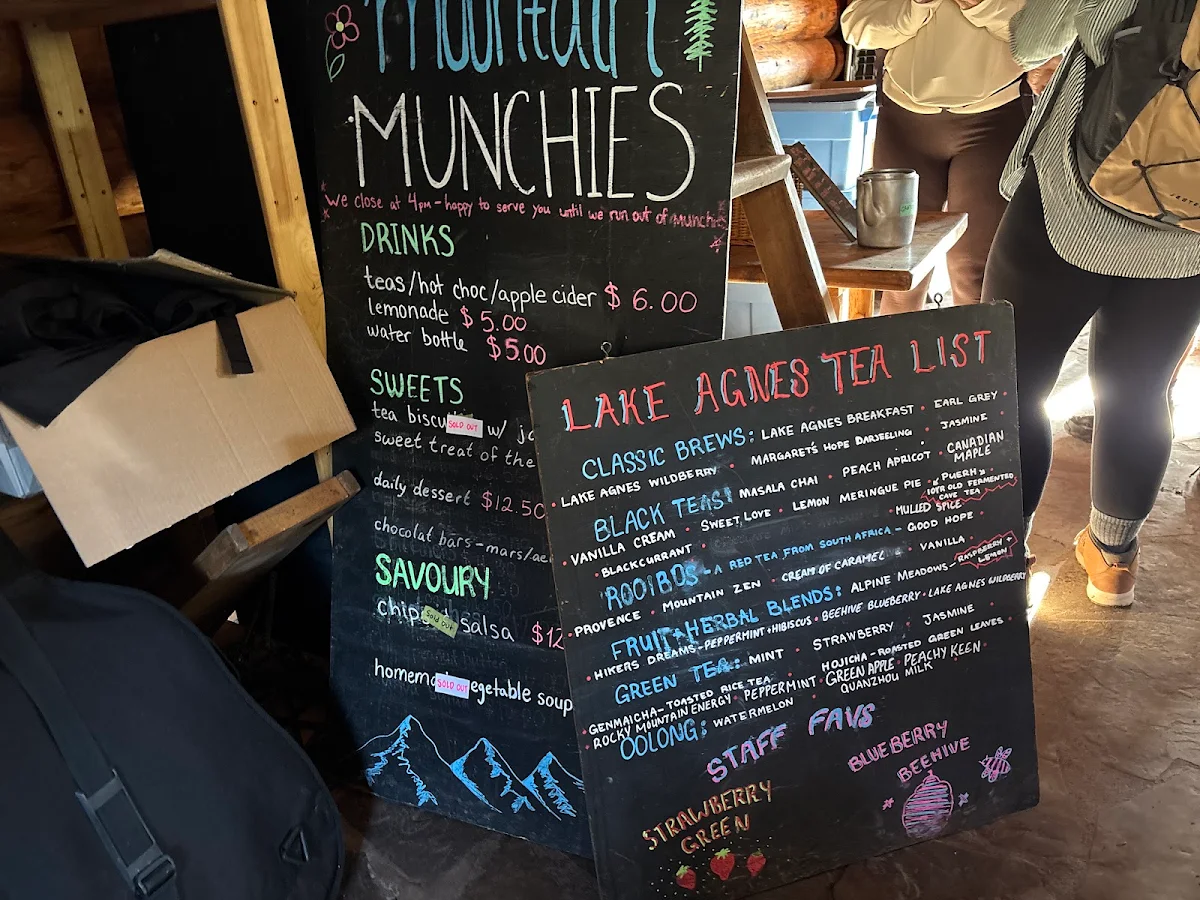 Mountain
MUNCHIES
We close at 4pm - happy to serve you until we run out of munchies
DRINKS
teas/hot choc/apple cider $6.00
lemonade $5.00
water bottle $5.00
SWEETS
tea biscu SOLD OUT w/
sweet treat of the
daily dessert $12.50
chocolat bars - mars/ae
SAVOURY
chips Sold Out salsa $12
homem SOLD OUT egetable soup
LAKE AGNES TEA LIST
CLASSIC BREWS: LAKE AGNES BREAKFAST • EARL GREY •
LAKE AGNES WILDBERRY • MARGARET'S HOPE DARJEELING • JASMINE
BLACK TEAS: MASALA CHAI • PEACH APRICOT • CANADIAN MAPLE
• VANILLA CREAM • SWEET LOVE • LEMON MERINGUE PIE • PUERH
10YR OLD FERMENTED CAVE TEA
• BLACKCURRANT • MULLED SPICE
ROOIBOS - A RED TEA FROM SOUTH AFRICA - GOOD HOPE •
• PROVENCE • MOUNTAIN ZEN • CREAM OF CARAMEL • VANILLA •
FRUIT + HERBAL BLENDS: ALPINE MEADOWS - RASPBERRY + LEMON
• HIKERS DREAMS - PEPPERMINT + HIBISCUS • BEEHIVE BLUEBERRY • LAKE AGNES WILDBERRY
GREEN TEA: MINT • STRAWBERRY • JASMINE •
GENMAICHA - TOASTED RICE TEA • HOJICHA - ROASTED GREEN LEAVES •
• ROCKY MOUNTAIN ENERGY • PEPPERMINT • GREEN APPLE • PEACHY KEEN •
OOLONG: WATERMELON • QUANZHOU MILK
STAFF FAVS
STRAWBERRY
GREEN
BLUEBERRY
BEEHIVE